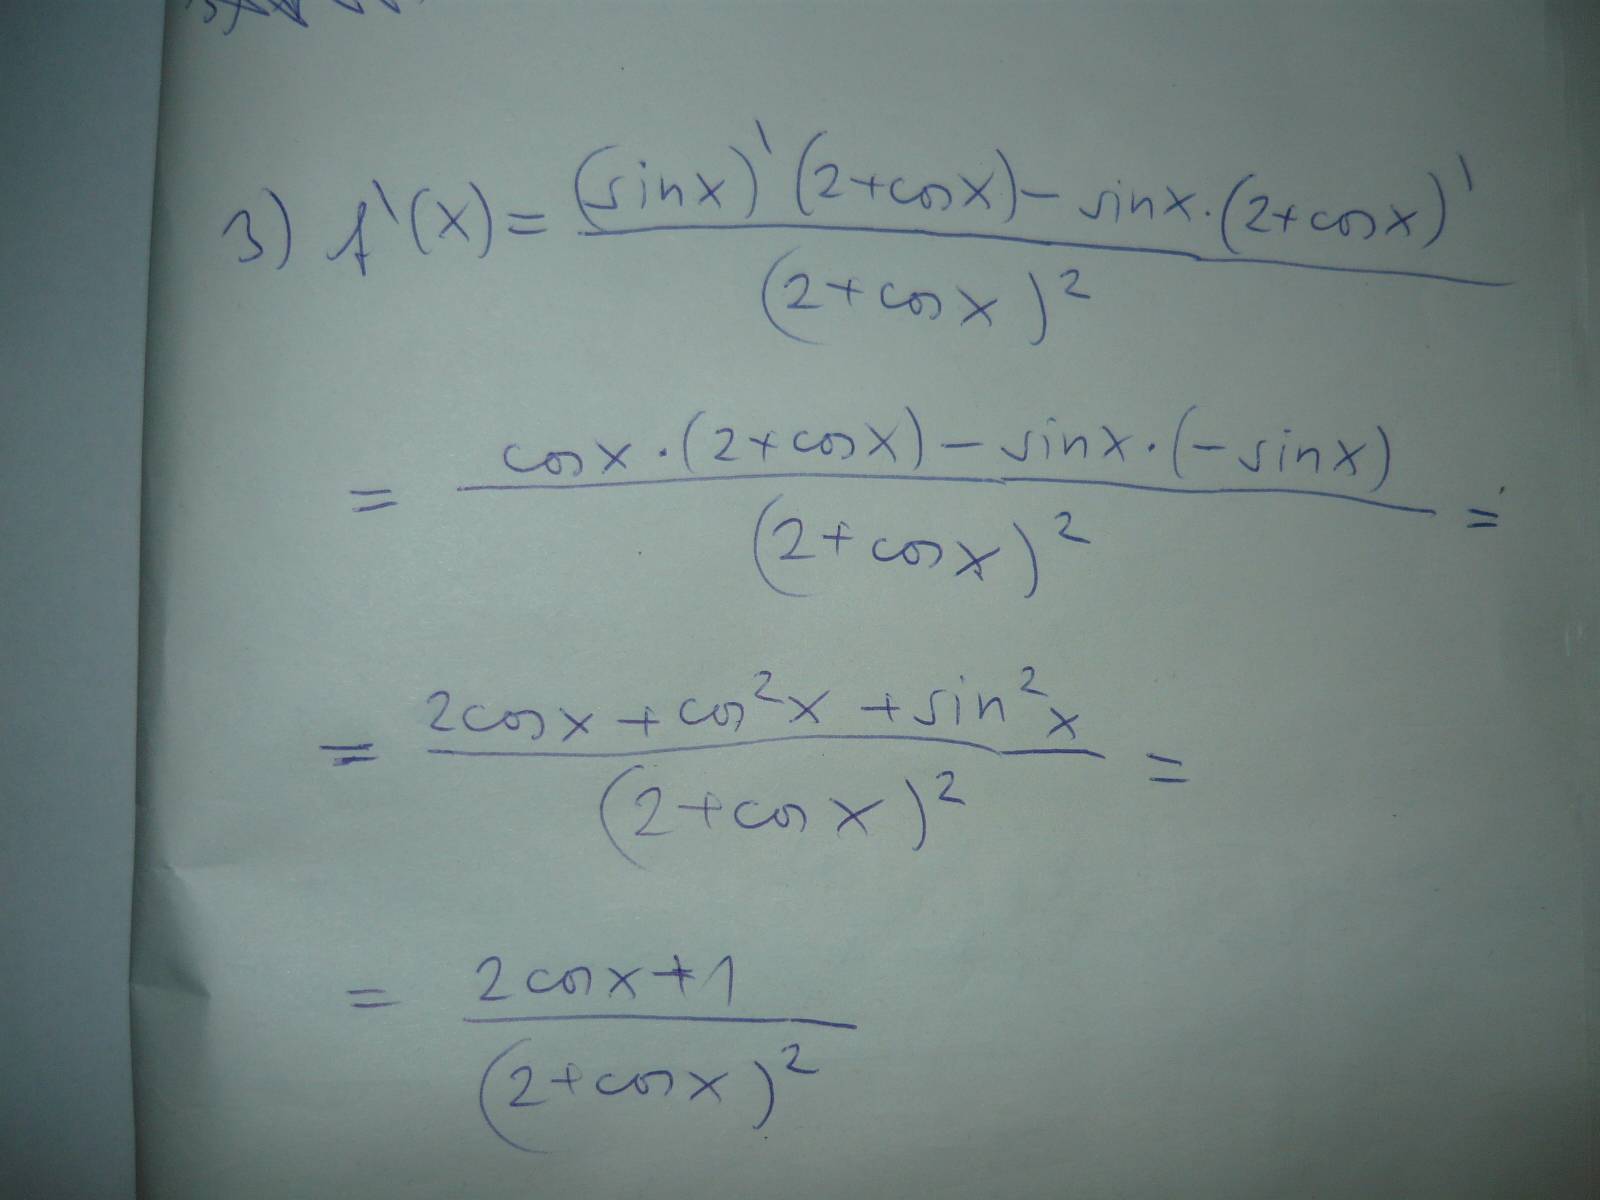 3) f'(x) = \frac{(sinx)' (2+cosx) - sinx \cdot (2+cosx)'}{(2+cosx)^2}
= \frac{cosx \cdot (2+cosx) - sinx \cdot (-sinx)}{(2+cosx)^2} =
= \frac{2cosx + cos^2x + sin^2x}{(2+cosx)^2} =
= \frac{2cosx+1}{(2+cosx)^2}